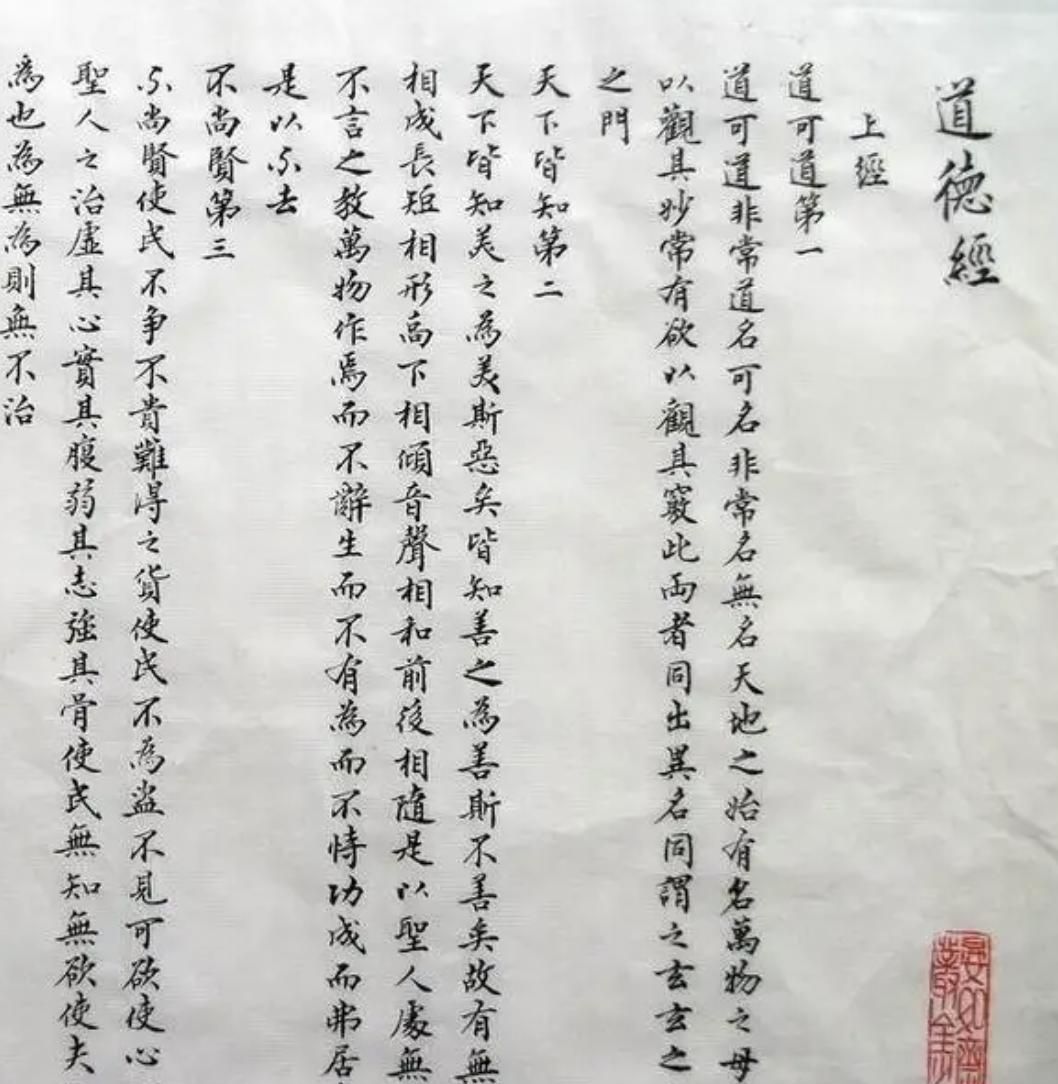 道德經
上經
道可道第一
道可道非常道名可名非常名無名天地之始有名萬物之母
以觀其妙常有欲以觀其竅此兩者同出異名同謂之玄玄之
之門
天下皆知第二
天下皆知美之為美斯惡矣皆知善之為善斯不善矣故有無
相成長短相形高下相傾音聲相和前後相隨是以聖人處無
不言之教萬物作焉而不辭生而不有為而不恃功成而弗居
是以不去
不尚賢第三
不尚賢使民不爭不貴難得之貨使民不為盜不見可欲使心
聖人之治虛其心實其腹弱其志強其骨使民無知無欲使夫
為也為無為則無不治